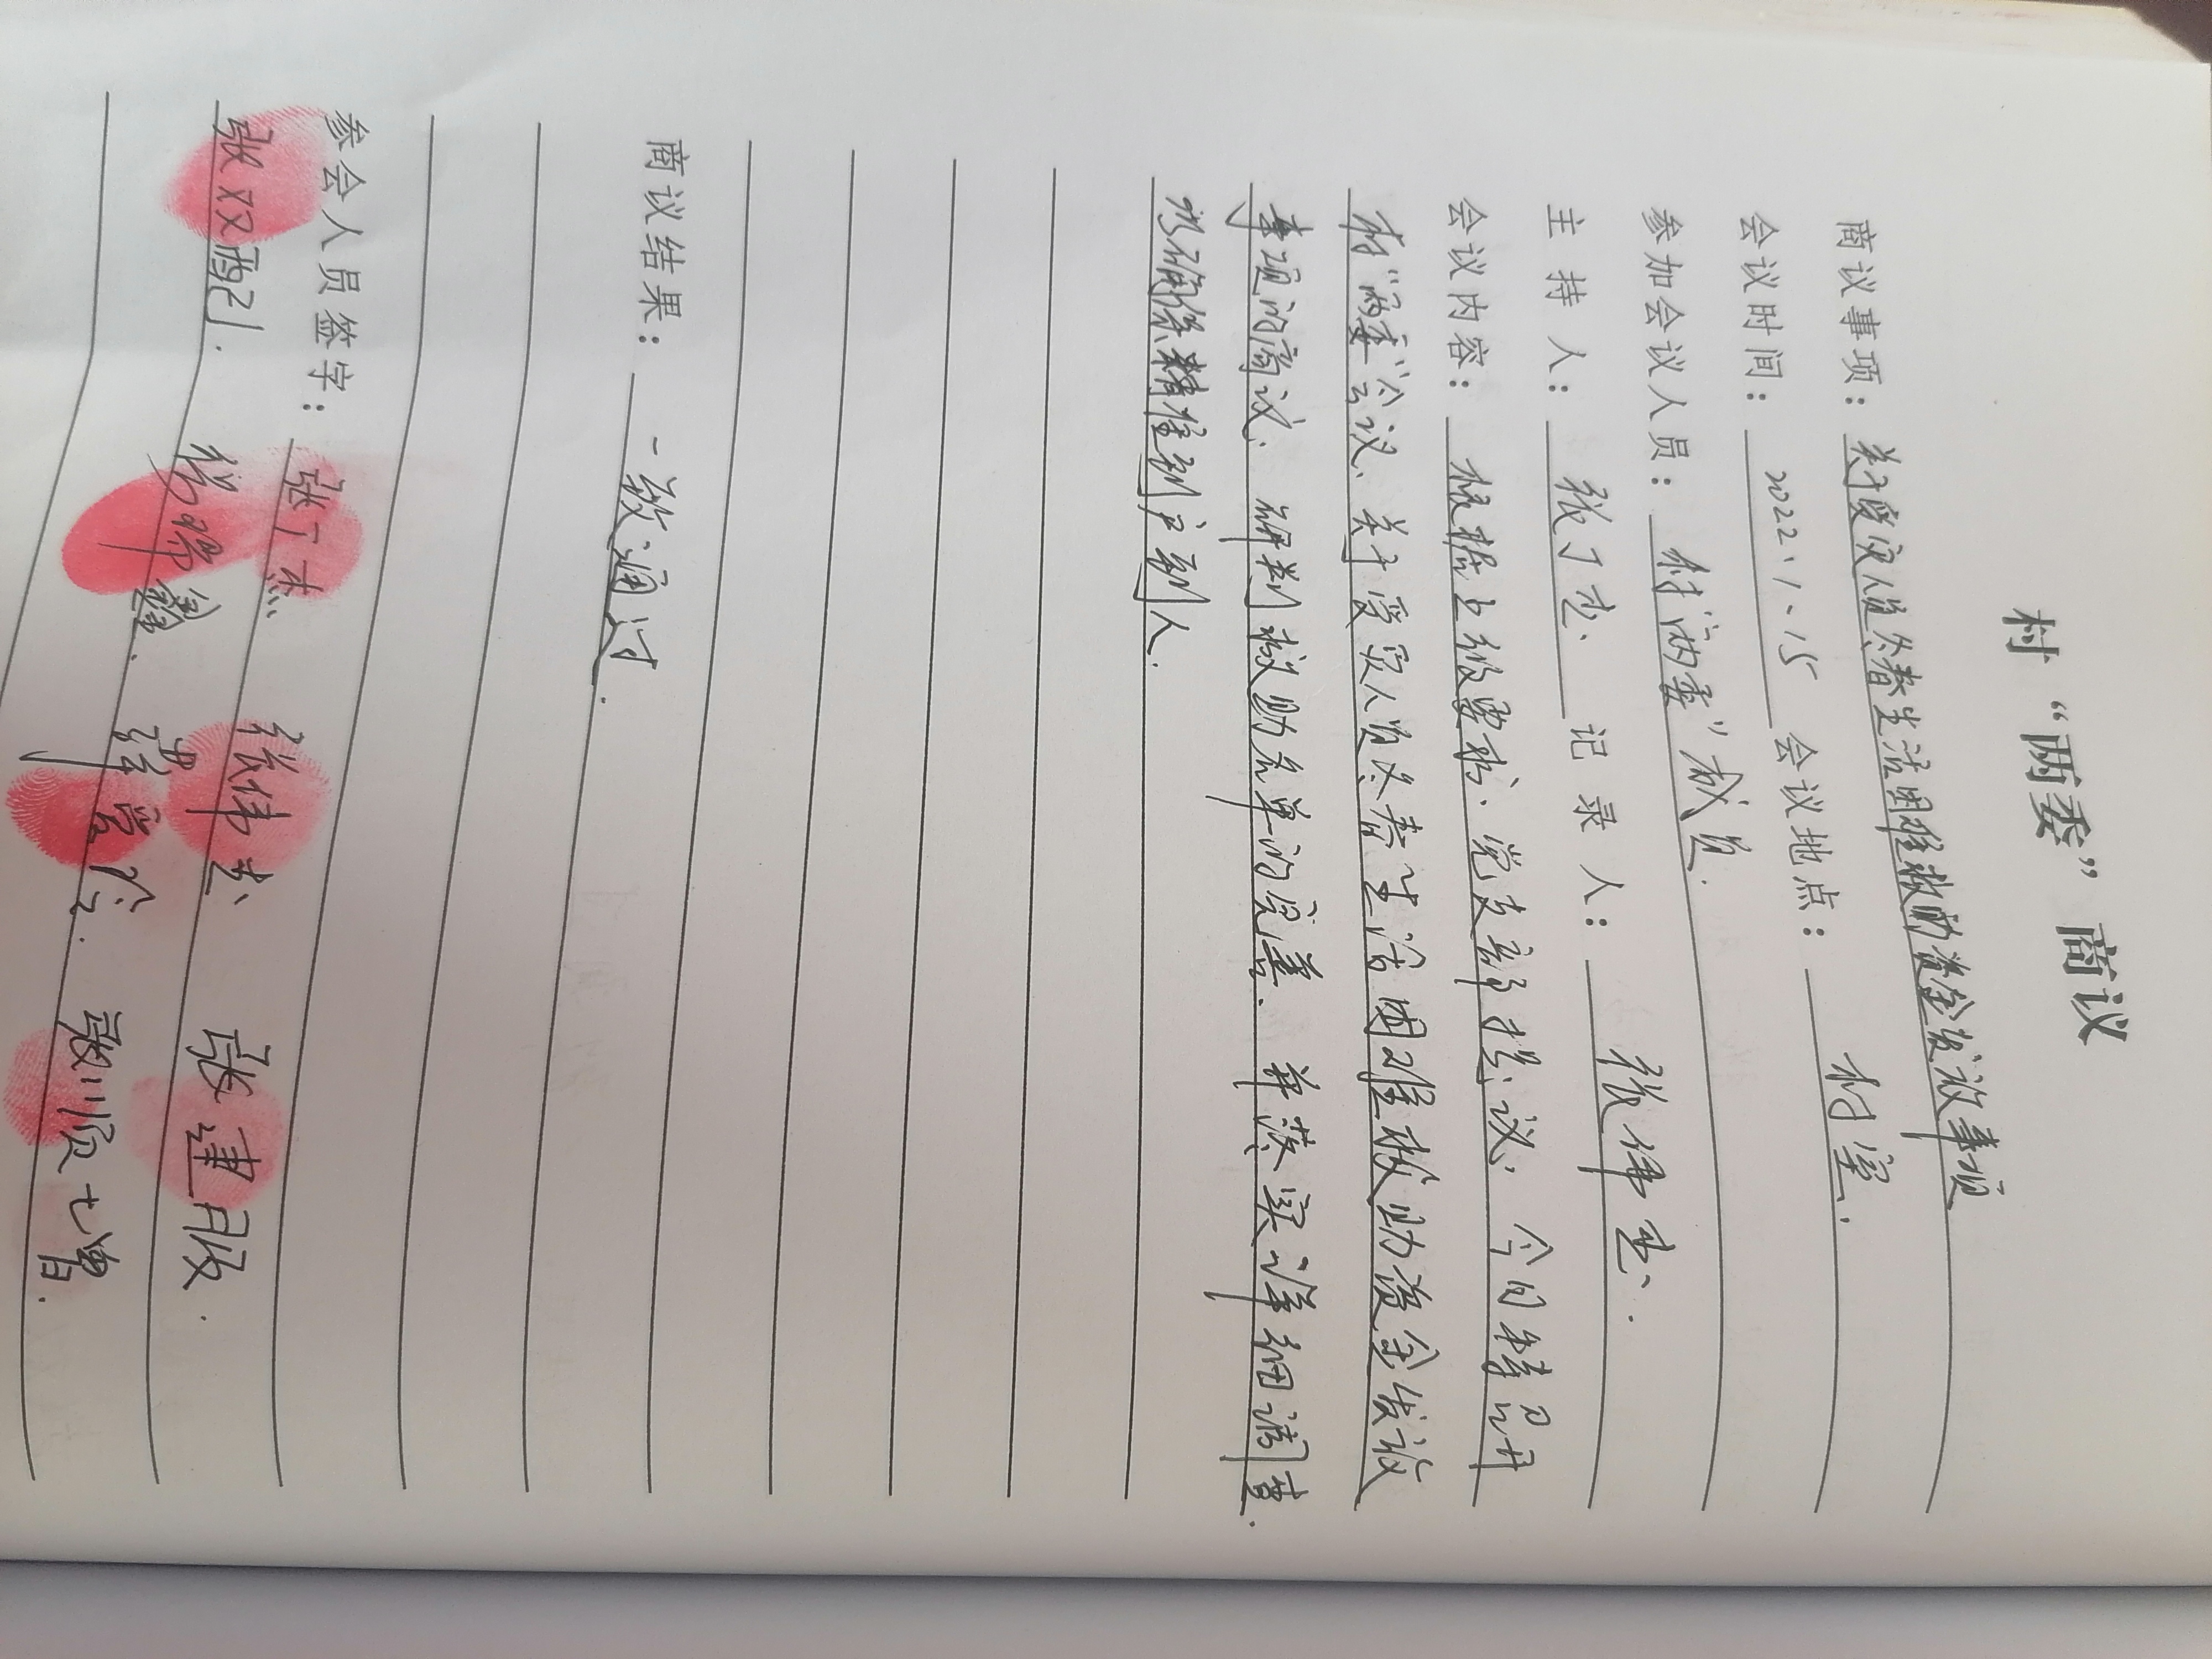 村“两委”商议
商议事项：关于受灾人员冬春生活困难救助资金发放事项
会议时间：2022.1.15 会议地点：村室.
参加会议人员：村“两委”成员.
主持人：张丁杰 记录人：张伟杰.
会议内容：根据上级要求、党支部提议，今日特召开
村“两委”会议、关于受灾人员冬春生活困难救助资金发放
事项的商议，研判救助名单的完善、并落实详细调查.
以确保精准到户到人.
商议结果：一致通过.
参会人员签字：张丁杰 张伟杰 张建服.
张双配. 鑫. 张